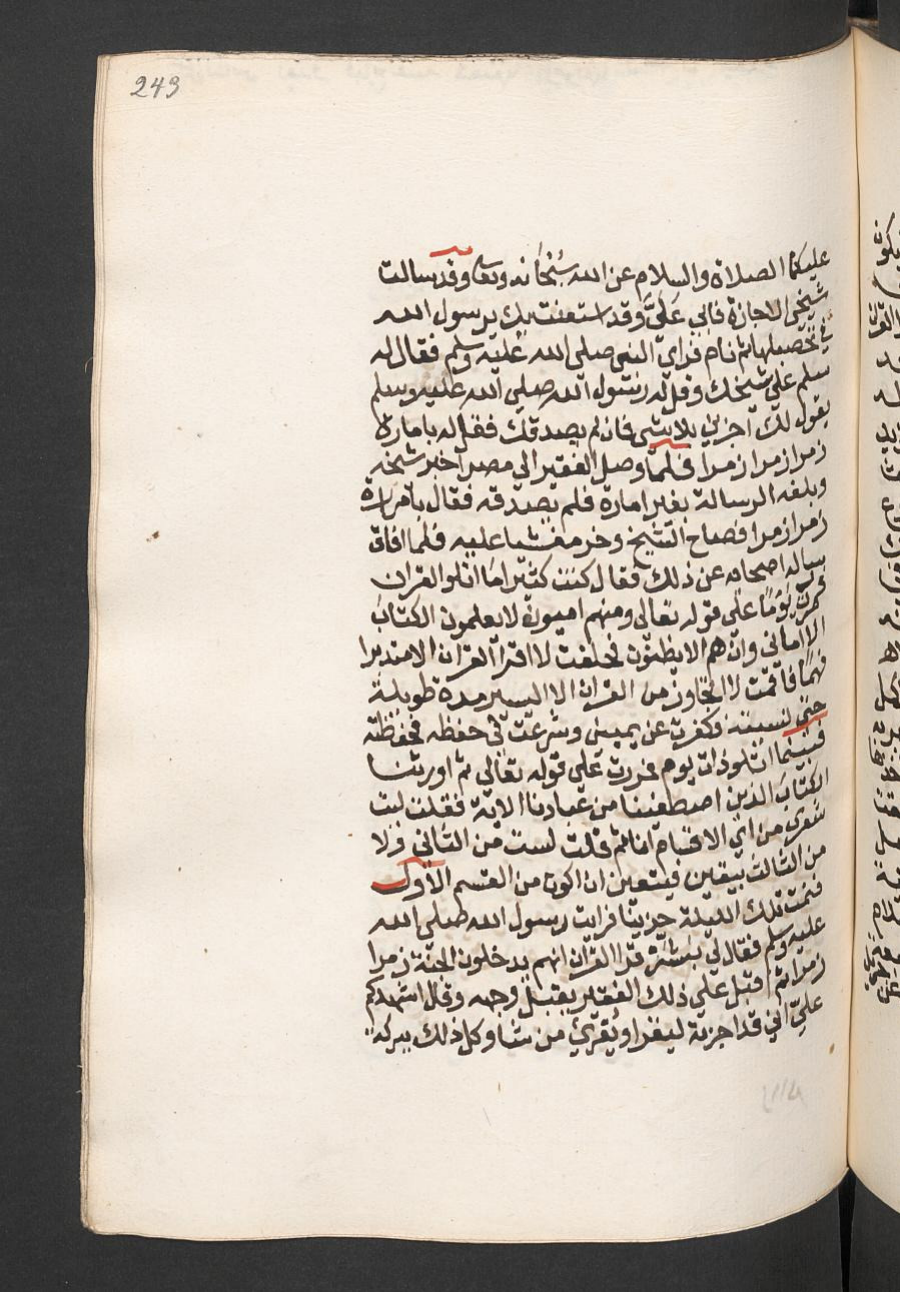 243
عليك الصلاة والسلام عن الله سبحانه وتعا وقد سالت
شيخي الاجازة فابي علَيَّ وقد استعنت بك يرسول الله
في تحصيلها ثم نام فراي النبي صلى الله عليه وسلم فقال له
سلم علي شيخك وقل له رسول الله صلى الله عليه وسلم
يقول لك اجزني بلا شي فان لم يصدقك فقل له بامارة
زمرا زمرا زمرا فلما وصل الفقير الي مصر اخبر شيخه
وبلغه الرسالة بغير امارة فلم يصدقه فقال بامارة
زمرا زمرا فصاح الشيخ وخر مغشيا عليه فلما افاق
ساله اصحابه عن ذلك فقال كنت كثيرا ما اتلو القران
فمررت يومًا علي قوله تعالى ومنهم اميون لا يعلمون الكتاب
الا اماني وان هم الا يظنون فحلفت لا اقرا القران الا متدبرا
فهما فاقمت لا اتجاوز من القران الا اليسير مدة طويلة
حتي نسيته فكفرت عن يميني وشرعت في حفظه فحفظته
فبينما اتلو ذات يوم فمررت علي قوله تعالي ثم اورثنا
الكتاب الذين اصطفينا من عبادنا الاية فقلت ليت
شعري من اي الاقسام انا ثم قلت لست من الثاني ولا
من الثالث بيقين فيتعين ان اكون من القسم الاول
فنمت تلك الليلة حزينا فرايت رسول الله صلى الله
عليه وسلم فقال لي بشر قرا القران انهم يدخلون الجنة زمرا
زمرا ثم اقبل علي ذلك الفقير يقبل وجهه وقال اشهدكم
علي اني قد اجزته ليقرا ويُقرئ من شا وكل ذلك ببركة